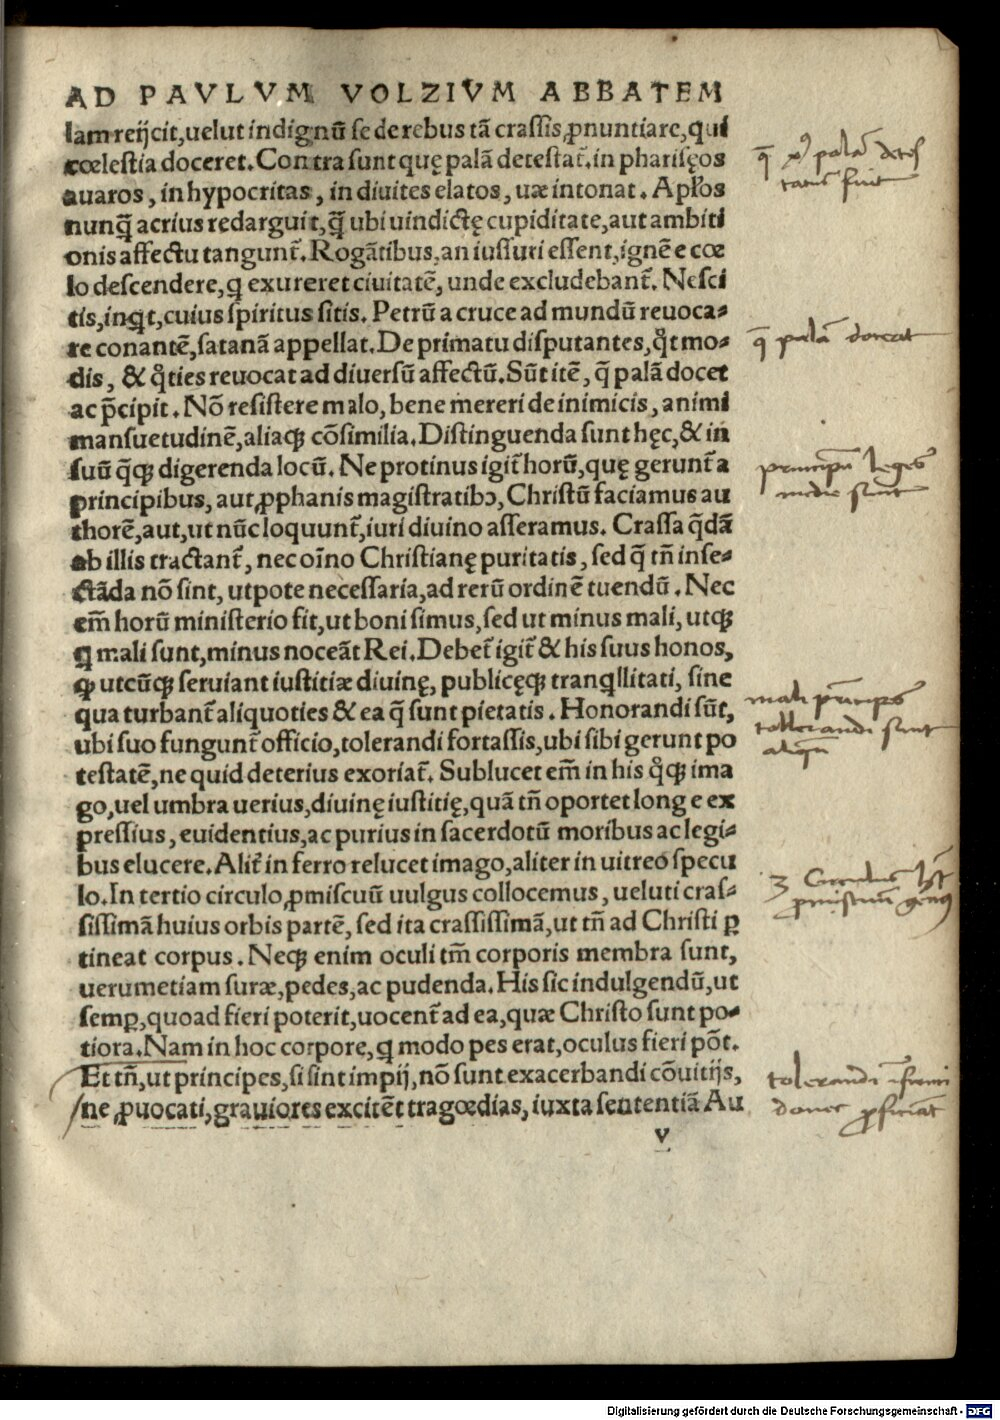 AD PAVLVM VOLZIVM ABBATEM
lam reijcit, uelut indignũ se de rebus tã crassis, ꝓnuntiare, qui
cœlestia doceret. Contra sunt quę palã detestat᷑. in pharisęos
auaros, in hypocritas, in diuites elatos, uæ intonat. Apłos
nunq̃ acrius redarguit, q̃ ubi uindictę cupiditate, aut ambiti
onis affectu tangunt᷑. Rogãtibus, an iussuri essent, ignẽ e cœ
lo descendere, ꝗ exureret ciuitatẽ, unde excludebant᷑. Nesci
tis, inꝗt, cuius spiritus sitis. Petrũ a cruce ad mundũ reuoca-
re conantẽ, satanã appellat. De primatu disputantes, q̊t mo-
dis, & q̊ties reuocat ad diuersũ affectũ. Sũt itẽ, q̃ palã docet
ac p̃cipit. Nõ resistere malo, bene mereri de inimicis, animi
mansuetudinẽ, aliaqꝫ cõsimilia. Distinguenda sunt hęc, & in
suũ q̃qꝫ digerenda locũ. Ne protinus igit᷑ horũ, quę gerunt᷑ a
principibus, aut ꝓphanis magistratibꝰ, Christũ faciamus au
thorẽ, aut, ut nũc loquunt᷑, iuri diuino asseramus. Crassa q̃dã
ab illis tractant᷑, nec oĩno Christianę puritatis, sed q̃ tñ inse-
ctãda nõ sint, utpote necessaria, ad rerũ ordinẽ tuendũ. Nec
em̃ horũ ministerio fit, ut boni simus, sed ut minus mali, utqꝫ
ꝗ mali sunt, minus noceãt Rei. Debet᷑ igit᷑ & his suus honos,
ꝙ utcũqꝫ seruiant iustitiæ diuinę, publicęqꝫ tranꝗllitati, sine
qua turbant᷑ aliquoties & ea q̃ sunt pietatis. Honorandi sũt,
ubi suo fungunt᷑ officio, tolerandi fortassis, ubi sibi gerunt po
testatẽ, ne quid deterius exoriat᷑. Sublucet em̃ in his q̊qꝫ ima
go, uel umbra uerius, diuinę iustitię, quã tñ oportet longe ex
pressius, euidentius, ac purius in sacerdotũ moribus ac legi-
bus elucere. Alit᷑ in ferro relucet imago, aliter in uitreo specu
lo. In tertio circulo, ꝓmiscuũ uulgus collocemus, ueluti cras-
sissimã huius orbis partẽ, sed ita crassissimã, ut tñ ad Christi ꝑ
tineat corpus. Neqꝫ enim oculi tm̃ corporis membra sunt,
uerumetiam suræ, pedes, ac pudenda. His sic indulgendũ, ut
semꝑ, quoad fieri poterit, uocent᷑ ad ea, quæ Christo sunt po-
tiora. Nam in hoc corpore, ꝗ modo pes erat, oculus fieri põt.
Et tñ, ut principes, si sint impij, nõ sunt exacerbandi cõuitijs,
ne, ꝓuocati, grauiores excitẽt tragœdias, iuxta sententiã Au
v
q̃ palã detes
tatus fuit
q̃ palã doceat
principũ leges
sunt
mali prĩcipes
tollerandi sunt
3 Circulus
ꝓmiscuũ
tolerandi infirmi
donec ꝓficiãt
Digitalisierung gefördert durch die Deutsche Forschungsgemeinschaft - DFG